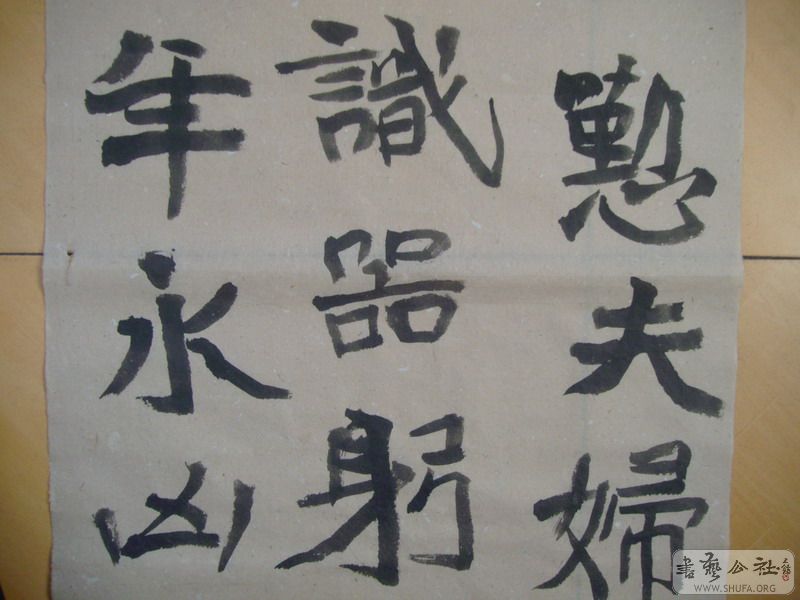 夫婦
識器躬
年永凶
書藝公社
WWW.SHUFA.ORG